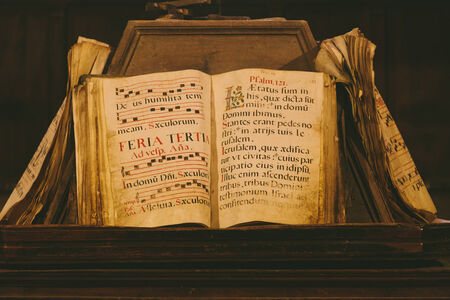 De us humilita tem
meam, Sæculorum.
FERIA TERTI
Ad vesp. Aña.
In domũ Dñi, Sæculoru
Alleluia, Sæculoru
Psalm. 121.
Lætatus sum in
his, quæ dicta sũt
mihi: * in domũ
Domini ibimus.
Stantes erant pedes no
stri: * in atrijs tuis Ie
rusalem.
Ierusalem, quæ ædifica
tur vt civitas: * cuius par
ticipatio eius in idipsũ.
Illuc enim ascenderunt
tribus, tribus Domini
testimonium Israel
confitendum